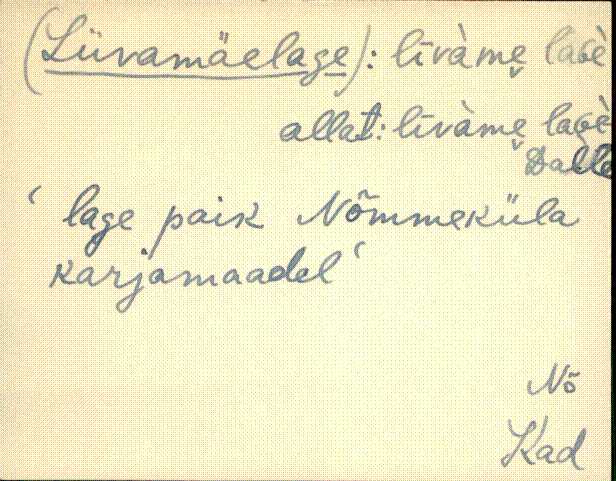 (Liivamäelage): līvàme̬ laGè
allat: līvàme̬ laGè
Dalle
‘ lage paik Nõmmeküla
karjamaadel ‘
Nõ
Kad